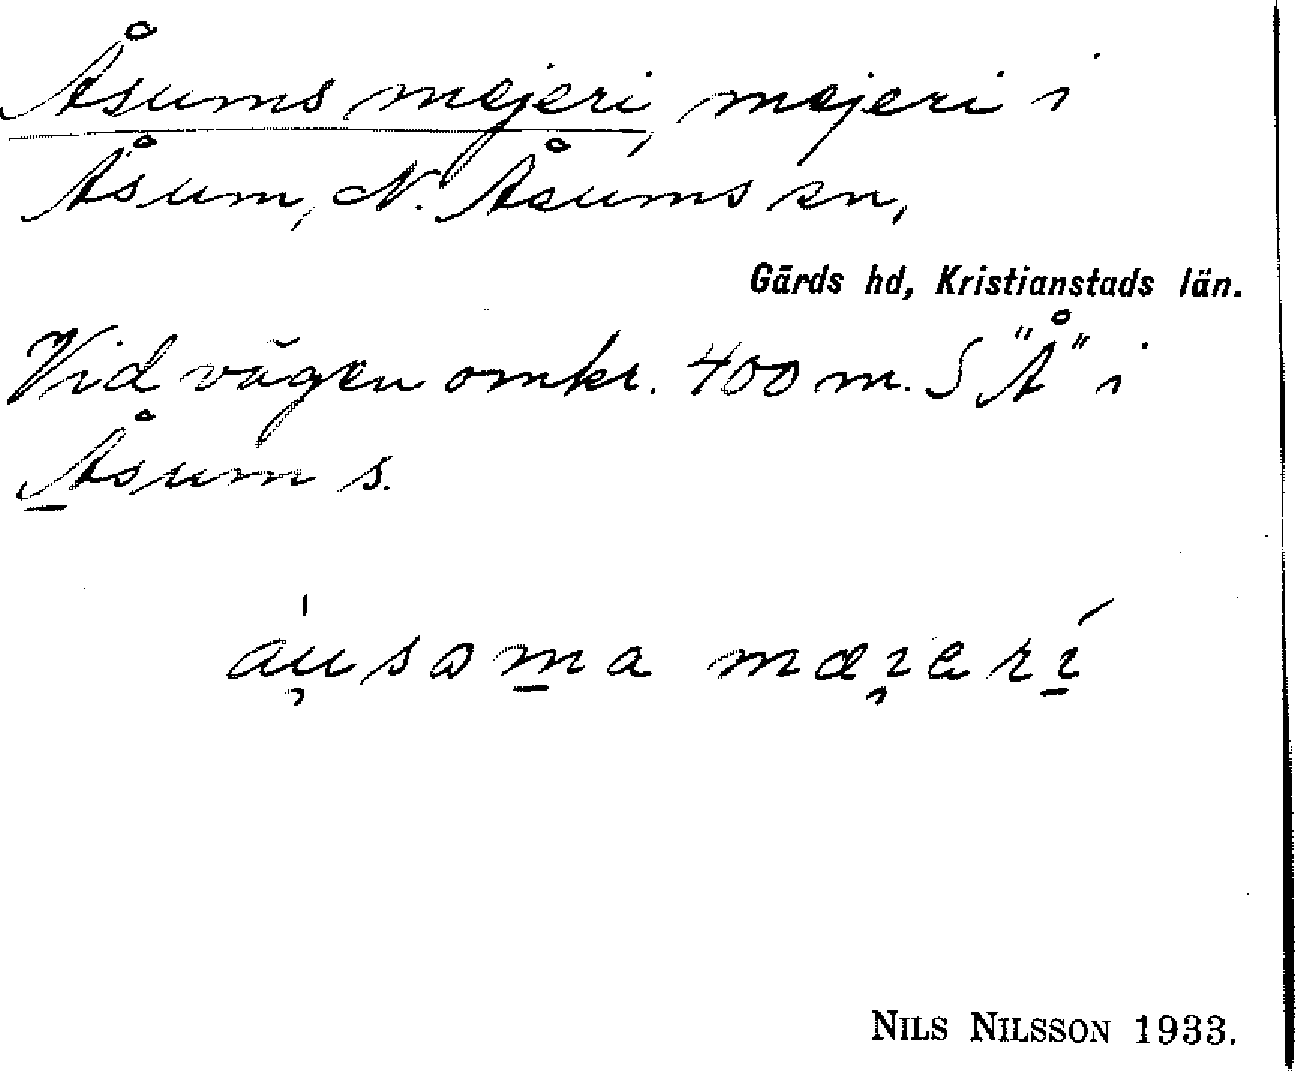 Åsums mejeri, mejeri i
Åsum, N. Åsums sn,
Gärds hd, Kristianstads län.
Vid vägen omkr. 400 m. S "Å" i
Åsum s.
áu̡səm̲a mæı̡erí̲
NILS NILSSON 1933.